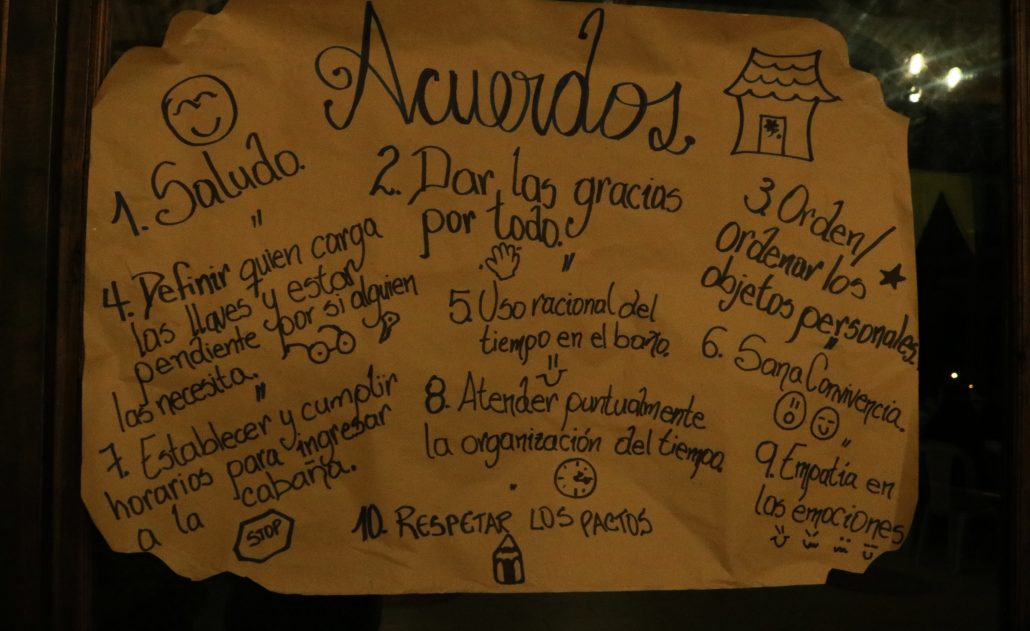 Acuerdos.
1. Saludo.
2. Dar las gracias
por todo.
3. Orden/
ordenar los
objetos personales.
4. Definir quien carga
las llaves y estar
pendiente por si alguien
las necesita.
5. Uso racional del
tiempo en el baño.
6. Sana Convivencia.
7. Establecer y cumplir
horarios para ingresar
a la cabaña.
8. Atender puntualmente
la organización del tiempo
9. Empatía en
las emociones
10. RESPETAR LOS PACTOS
STOP